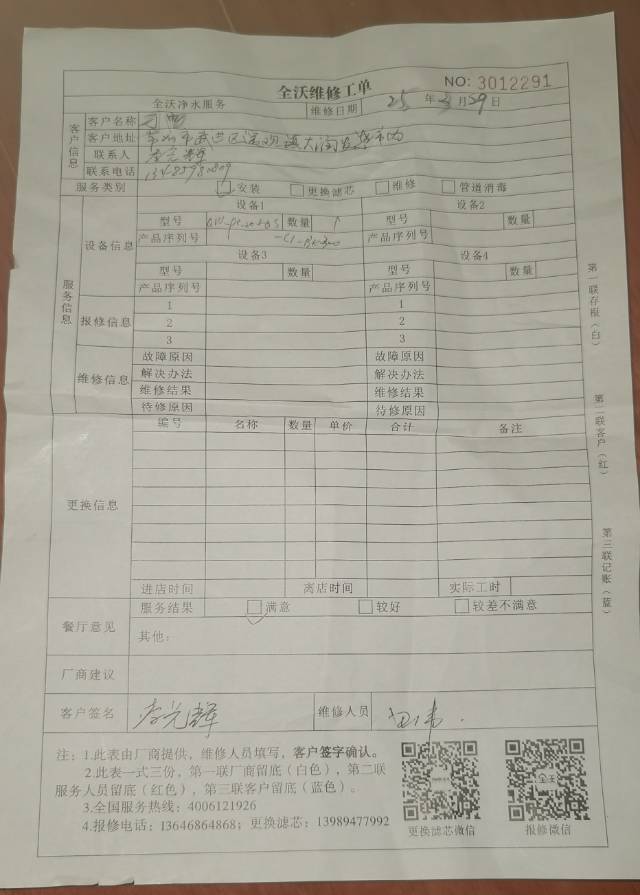 全沃维修工单
NO: 3012291
全沃净水服务 维修日期 25 年 3 月 29 日
客户信息
客户名称
客户地址
联系人 李光辉
联系电话
服务类别 安装 更换滤芯 维修 管道消毒
服务信息
设备信息
设备1 设备2
型号 数量 1 型号 数量
产品序列号 产品序列号
设备3 设备4
型号 数量 型号 数量
产品序列号 产品序列号
报修信息
1 1
2 2
3 3
维修信息
故障原因 故障原因
解决办法 解决办法
维修结果 维修结果
待修原因 待修原因
更换信息
编号 名称 数量 单价 合计 备注
进店时间 离店时间 实际工时
餐厅意见
服务结果 满意 较好 较差不满意
其他:
厂商建议
客户签名 李光辉 维修人员
注: 1.此表由厂商提供，维修人员填写，客户签字确认。
2.此表一式三份，第一联厂商留底（白色），第二联
服务人员留底（红色），第三联客户留底（蓝色）。
3.全国服务热线: 4006121926
4.报修电话: 13646864868; 更换滤芯: 13989477992
更换滤芯微信 报修微信
第一联存根（白）
第二联客户（红）
第三联记账（蓝）